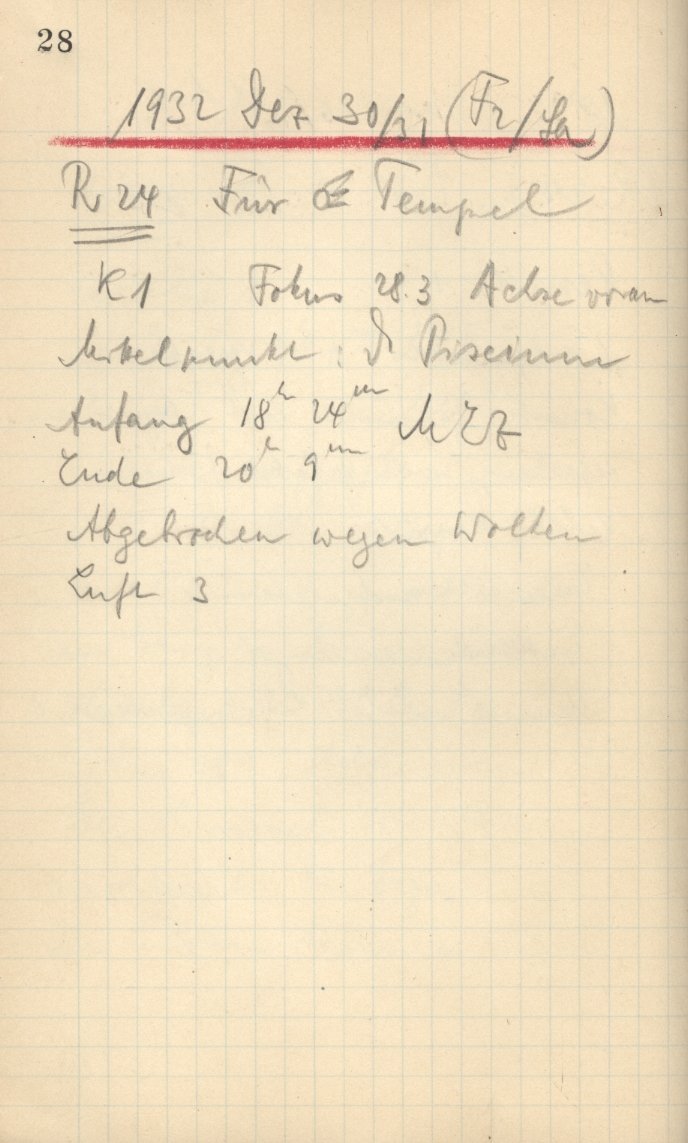 28
1932 Dez 30/31 (Fr/Sa)
R 24 Für Tempel
K1 Fokus 28.3 Achse voran
Mittelpunkt: δ Piscium
Anfang 18h 24m MEZ
Ende 20h 9m
Abgebrochen wegen Wolken
Luft 3